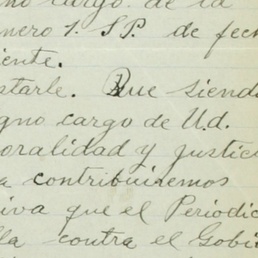 no cargo de la
nero 1. S.P. de fech
iente.
starle. Que siendo
gno cargo de Ud.
oralidad y justici
a contribuiremos
iva que el Periodic
lla contra el Gobi